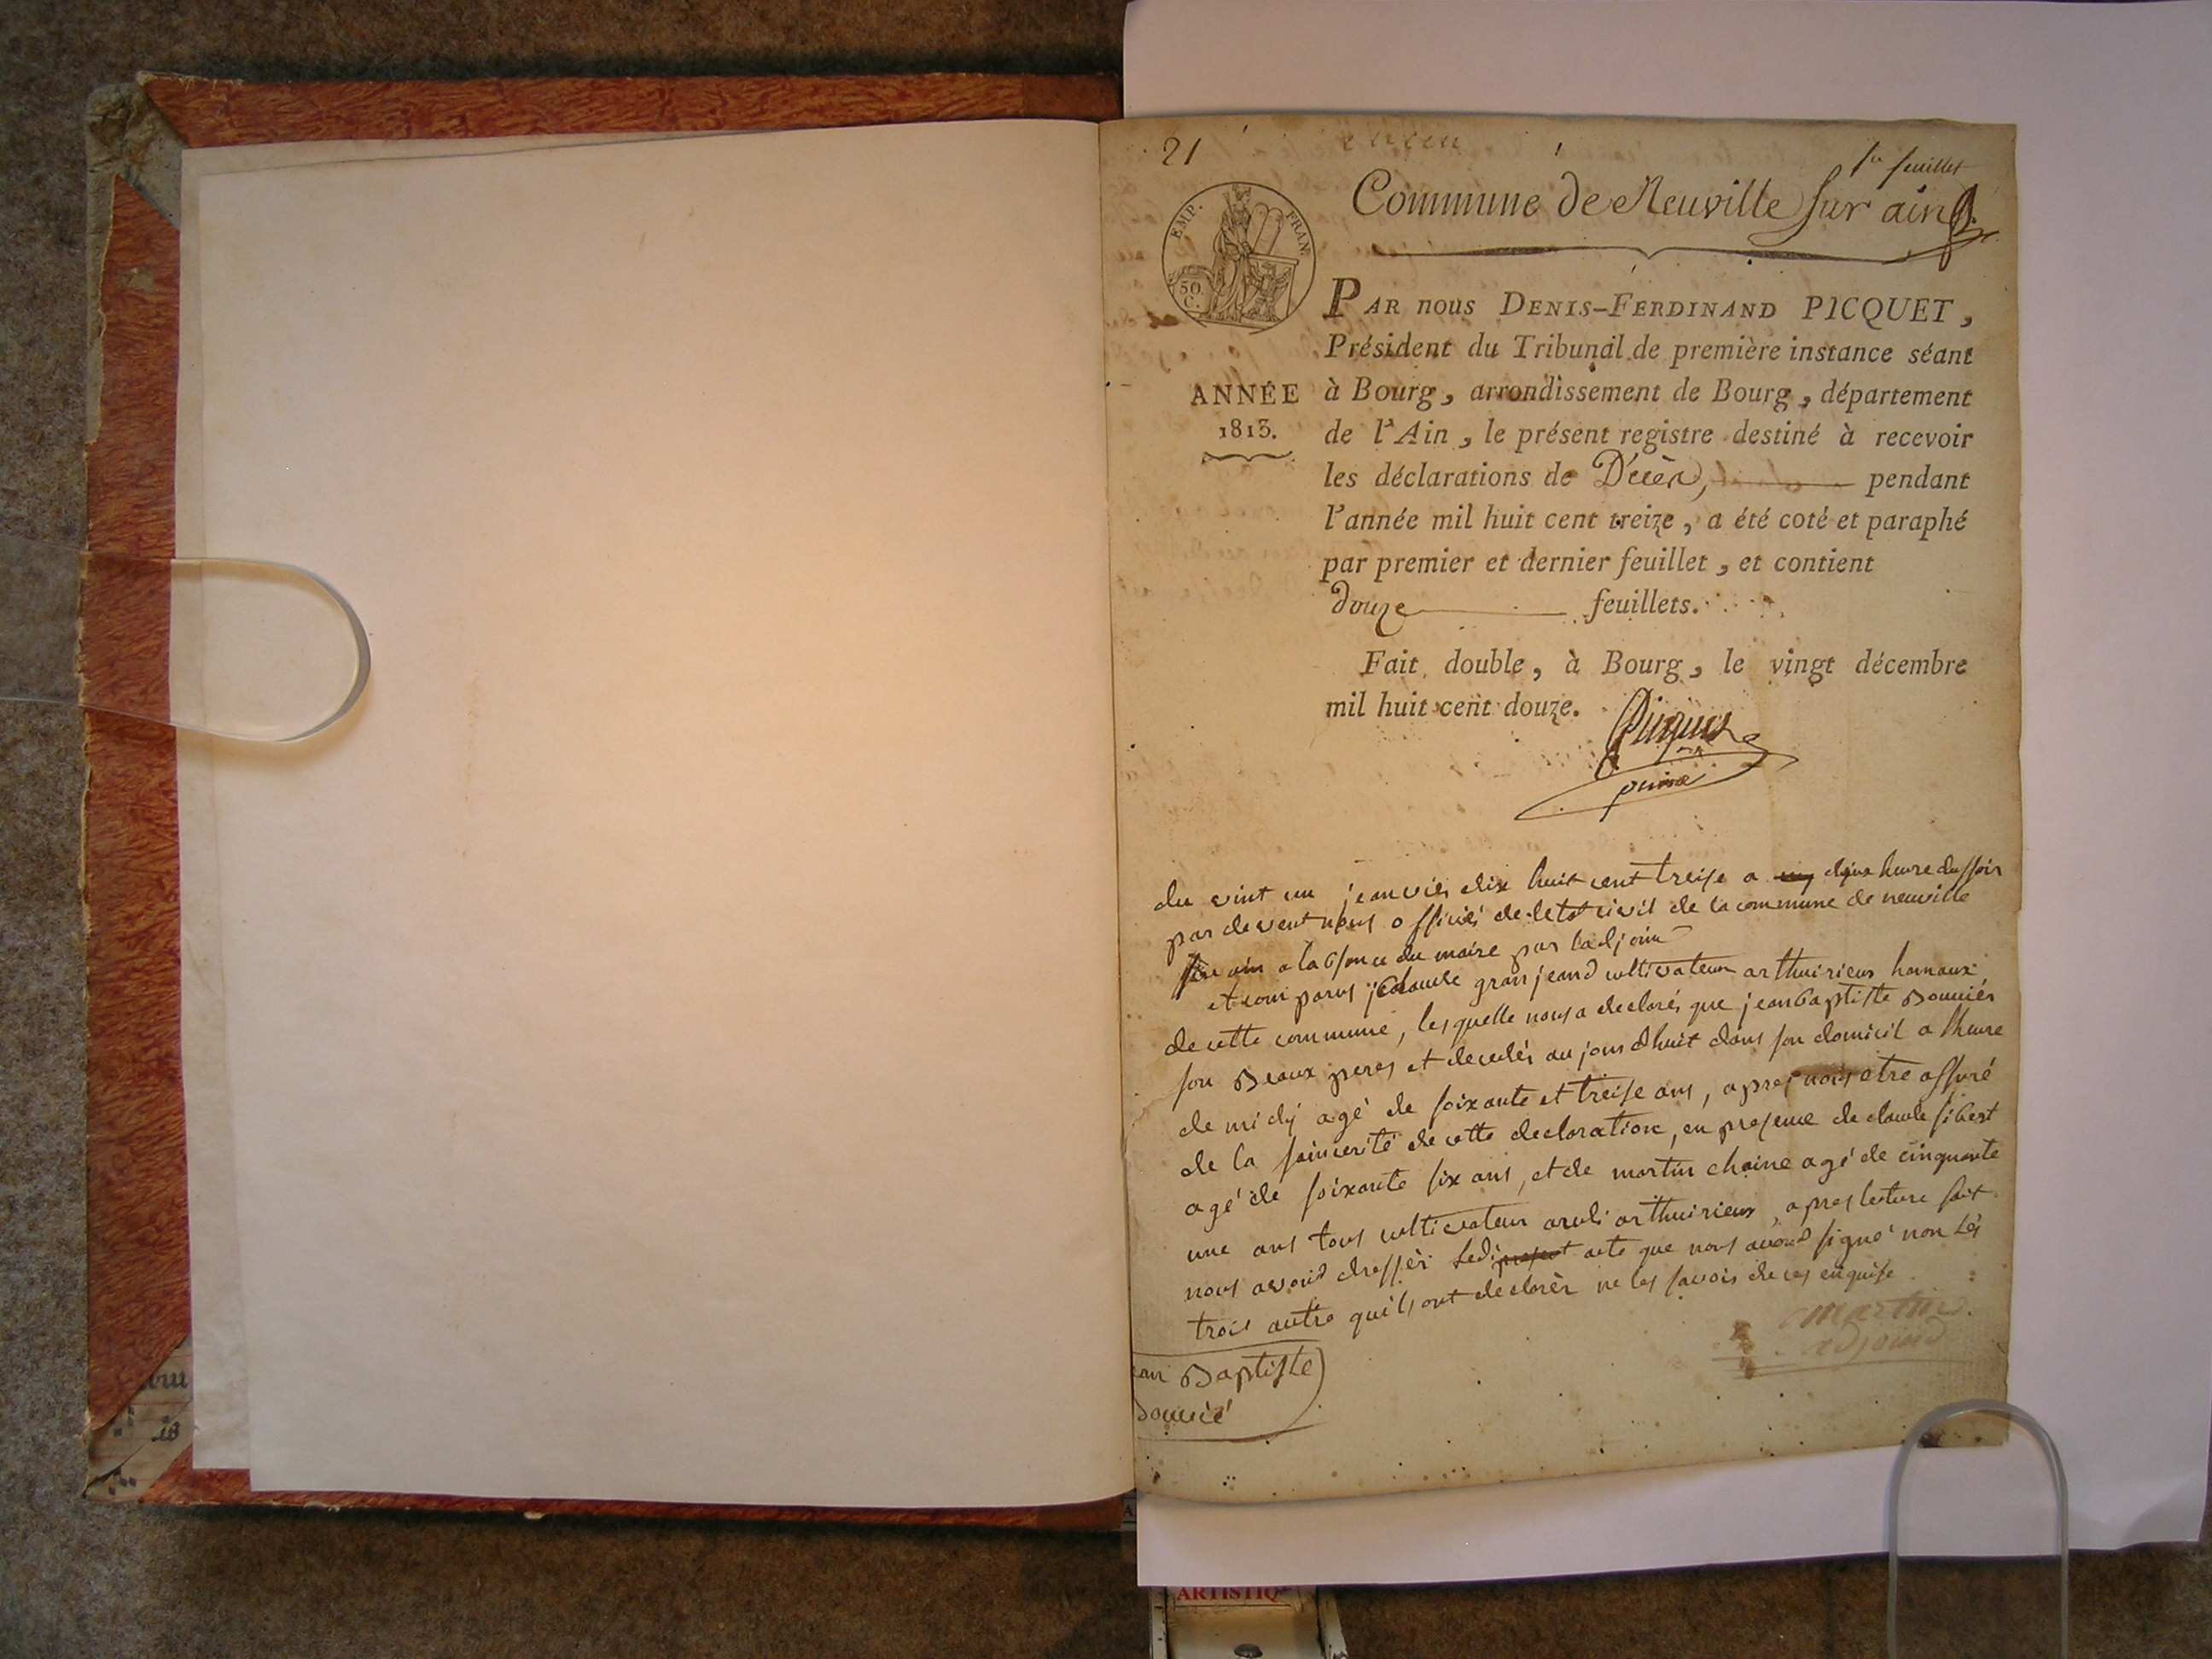 21
1er feuillet
Commune de Neuville sur ain
EMP. FRAN.
50. C.
ANNÉE
1813.
PAR nous DENIS-FERDINAND PICQUET,
Président du Tribunal de première instance séant
à Bourg, arrondissement de Bourg, département
de l'Ain, le présent registre destiné à recevoir
les déclarations de Décès, pendant
l'année mil huit cent treize, a été coté et paraphé
par premier et dernier feuillet, et contient
douze feuillets.
Fait double, à Bourg, le vingt décembre
mil huit cent douze.
Picquet
du vint un jeanvier dix huit cent treise a deux heure du soir
par devent nous officié de letat civil de la commune de neuville
sur ain a la bsence du maire par ladjoin
et comparus Claude granjeand cultivateur arthuirieux hamaux
de cette commune, lesquelle nous a declaré que jean baptiste Bouvier
son Beaux peres et decedér au jour dhuit dans son domicil a lheure
de midÿ agé de soixante et treise ans, apres nous etre assuré
de la sainserité de cette declaration, en presence de claude sibert
agé de soixante six ans, et de martin chaine agé de cinquante
une ans tous cultivateur arthuirieux, apres lecture fait
nous avond dressér ledi present acte que nous avond signé non Lés
trois autre quils ont declarér ne les savois de ces enquise
martin
adjoind
ean Baptiste